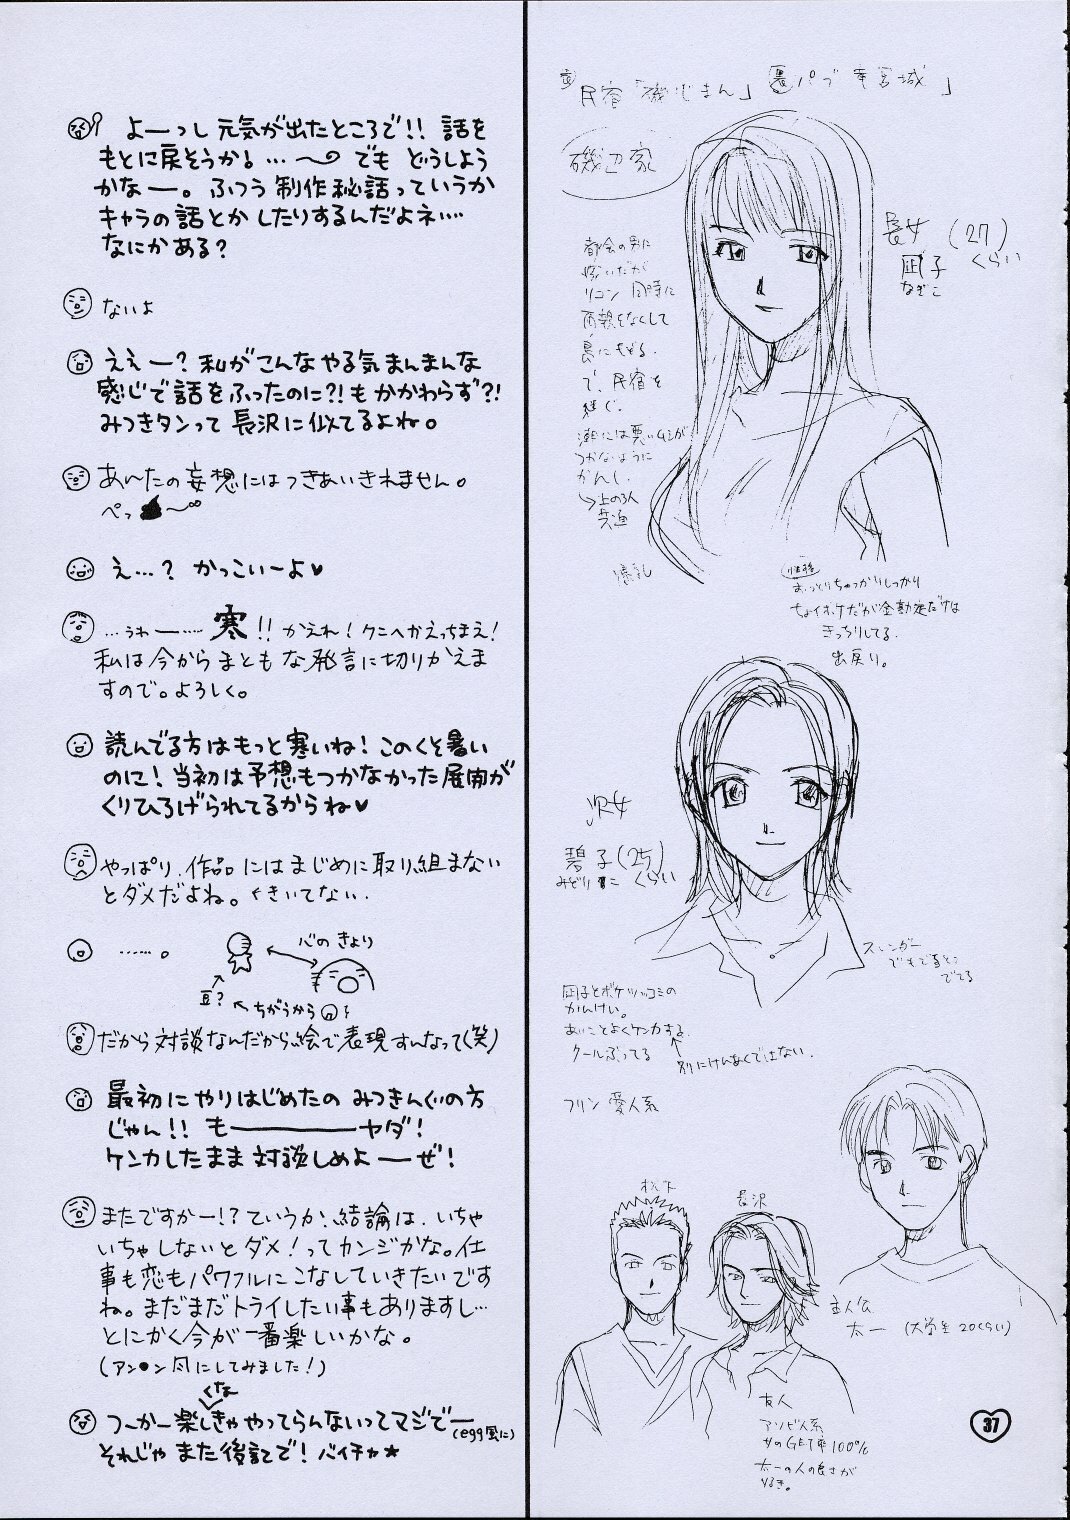 よーっし 元気が出たところで!! 話を
もとに戻そうか! …〜 でも どうしよう
かなー。 ふつう 制作秘話っていうか
キャラの話とか したりするんだよネ…
なにかある?
ないよ
ええー? 私が こんな やる気 まんまんな
感じで 話を ふったのに?! も かかわらず?!
みつきタンって 長沢に 似てるよね。
あ〜たの 妄想には つきあいきれません。
ぺっ 〜
え…? かっこいーよ♥
…うわー…… 寒!! かえれ! クニへかえっちまえ!
私は 今から まともな 発言に 切りかえま
すので。よろしく。
読んでる方は もっと 寒いね! このくそ暑い
のに! 当初は 予想も つかなかった 展開が
くりひろげられてるからね♥
やっぱり、作品には まじめに 取り組まない
と ダメだよね。 くきいてない.
……。
心の きょり
豆?
ちがうから
だから 対談なんだから 絵で 表現 すんなって(笑)
最初に やりはじめたの みつきんぐの方
じゃん!! もーーーヤダ!
ケンカしたまま 対談しめよーーぜ!
またですかー!? ていうか、結論は、いちゃ
いちゃしないと ダメ! って カンジかな。仕
事も 恋も パワフルに こなしていきたいです
ね。まだまだ トライしたい 事も ありますし…
とにかく 今が 一番 楽しいかな。
(アン●ン 風にしてみました!)
くな
つーかー 楽しきゃ やってらんないって マジでー
(egg風に)
それじゃ また 後記で! バイチャ★
民宿「磯じまん」 パブ 竜宮城」
磯辺家
長女 (27)
凪子 くらい
なぎこ
都会の男に
嫁いだが
リコン 同時に
両親をなくして
島にもどる.
で、民宿を
継ぐ.
には悪いムシが
つかないように
かんし.
→上の3人
共通
爆乳
性格
おっとりちゃっかりしっかり
ちょいボケだが金勘定だけは
きっちりしてる.
出戻り。
次女
碧子(25)
みどりこ くらい
スレンダー
でもでるとこ
でてる
凪子とボケツッコミの
かんけい.
あいことよくケンカする.
クールぶってる
別にけんあくではない.
フリン 愛人系
松下
長沢
主人公
太一 (大学生 20くらい)
友人
アソビ人系
女のGET率100%
太一の人の良さが
すき。
37